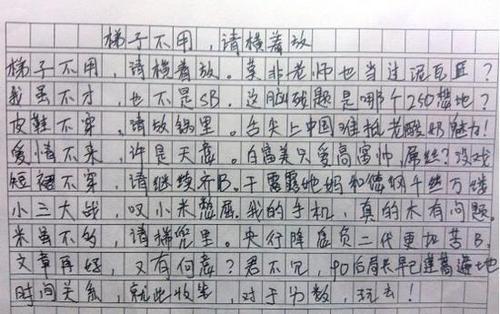 梯子不用，请横着放
梯子不用，请横着放。莫非老师也当过泥瓦匠？
我虽不才，也不是SB。这脑残题是哪个250想地？
皮鞋不穿，请放锅里。舌尖上中国难抵老酸奶魅力！
爱情不来，许是天意。白富美只爱高富帅，屌丝？没戏
短裙不穿，请继续齐B。干露露她妈和德纲千丝万缕
小三大战，叹小米憋屈。我的手机，真的木有问题
米虽不多，请揣兜里。央行降息负二代更加苦B。
文章再好，又有何意？君不见，90后局长早已蓬蒿遍地
时间关系，就此收笔，对于分数，玩去！